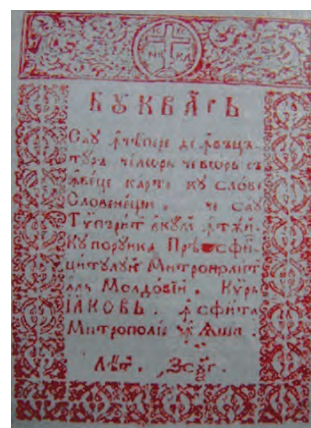 БУКВАРЬ
Сау ꙟчепере де ꙟвъцъ-
туръ челѡрь че вѡрь съ
ꙟвеце карте ку слове
Словенещи. че сау
Тѵпърит акум ꙟтѫй.
Ку порунка Прѣѡсфи-
цитулуй Митрополит
аль Молдовїй. Курь
ІАКОВЬ. ꙟ сфѫнта
Митрополїе ꙟ Ꙗши.
Лѣт. ҂ЗСѮГ.